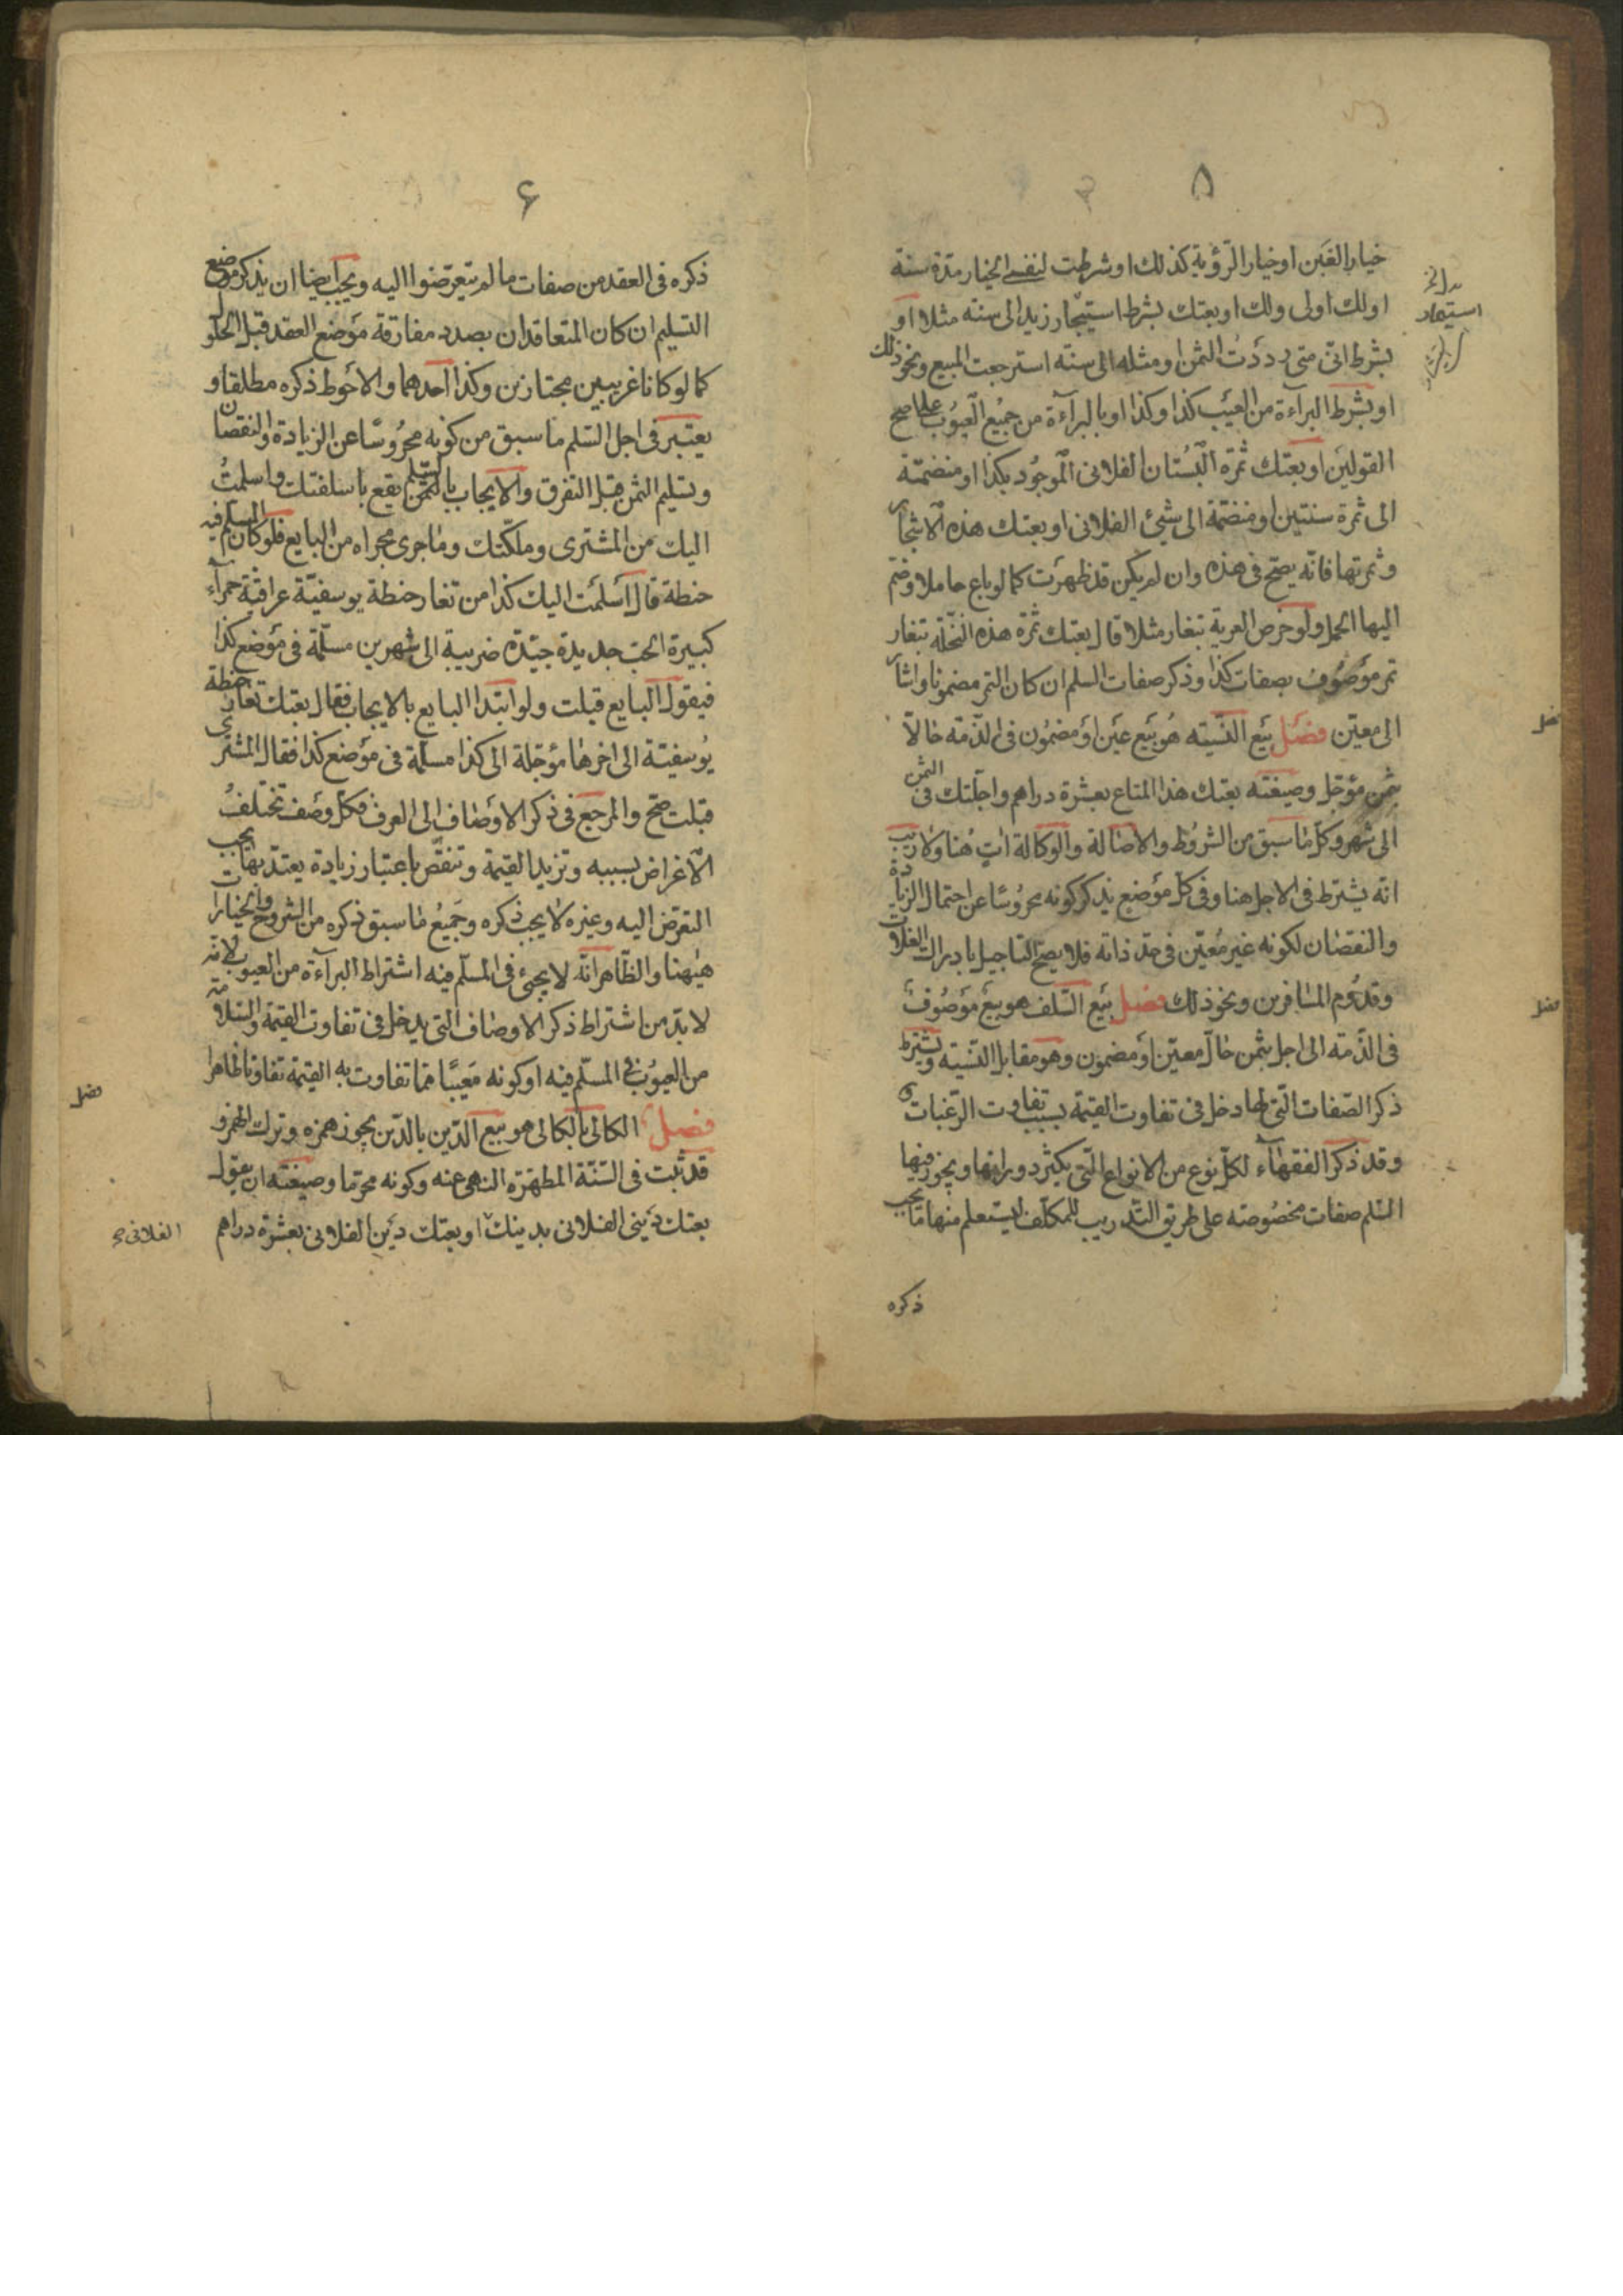 ۵
خيار الغَبن او خيار الرّؤية كذلك او شرطت لنفسى الخيار مدّة سنة
او لك او لى ولك او بعتك بشرط استيجار زيد الى سنة مثلا او
بشرط انّى متى رددَتُ الثمن او مثله الى سنة استرجعت المبيع ونحو ذلك
او بشرط البرآءة من العيَب كذا وكذا او بالبرآءة من جميُع العيُوب على اصح
القولين او بعتك ثمرة البُستان الفلانى الموجُود بكذا او منضمّة
الى ثمرة سنتين او منضمّة الى شيئ الفلانى او بعتك هذه الاشجار
وثمرتها فانّه يصحّ فى هذه وان لم يكن قد ظهرَت كما لو باع حاملا وضم
اليها الحمل ولو خرص العرية بتغار مثلا قال بعتك ثمرة هذه النخلة بتغار
تمر موَصوُف بصفات كذا وذكر صفات السلم ان كان التمر مضمونا واشار
الى معيّن فصَل بيَع النّسيئه هُو بيَع عيَن اوَ مضمُون فى الذّمّة حالاّ
بثمن مؤجل وصيغته بعتك هذا المتاع بعشرة دراهم واجّلتك فى الثمن
الى شهر وكلّ ما سبق من الشروُط والاصالة والوكالة اتٍ هُنا ولا ريب
انّه يشترط فى الاجل هنا وفى كلّ موَضع يذكر كونه محروُسًا عن احتمال الزيادة
والنقصان لكونه غير مُعيّن فى حدّ ذاته فلا يصحّ التاجيل بادراك الغلات
وقدُوم المسافرين ونحو ذلك فصل بيَع السّلف هو بيعَ موَصُوف
فى الذّمّة الى اجل بثمن حالّ معيّن اوَ مضمون وهو مقابل النّسيئه ويشترط
ذكر الصّفات الّتى لها دخل فى تفاوت القيمة بسبب تفاوت الرّغبات و
وقد ذكر الفقهآء لكلّ نوع من الانواع الّتى يكثر دورانها ويجوز فيها
السّلم صفات مخصُوصة على طريق التّدريب للمكلّف ليستعلم منها ما يجب
ذكره
فصل
فصل
۶
ذكره فى العقد من صفات ما لم يتعرّضوا اليه ويجب ايضا ان يذكر موضع
التسليم ان كان المتعاقدان بصدد مفارقة موَضع العقد قبل الحلول
كما لو كانا غريبين مجتازين وكذا احدهما والاحَوط ذكره مطلقا و
يعتبر فى اجل السّلم ما سبق من كونه محرُوسًا عن الزيادة والنقصان
وتسليم الثمن قبل التفرق والايجاب بالسّلم يقع باسلفتك واسلمتُ
اليك من المشترى وملّكتك وما جرى مجراه من البايع فلو كان المسلم فيه
حنطة قال اسَلمَت اليك كذا من تغار حنطة يوسفيّة عراقيّة حمرآء
كبيرة الحب جديدة جيّدة ضريبة الى شهرين مسلّمة فى موَضع كذا
فيقول البايع قبلت ولو ابتدا البايع بالايجاب فقال بعتك تغار حنطة
يُوسفيّة الى اخرها مؤجّلة الى كذا مسلّمة فى موَضع كذا فقال المشترى
قبلت صحّ والمرجع فى ذكر الاوَصاف الى العرف فكلّ وصَف تختلفُ
الاغراض بسببه وتزيد القيمة وتنقص باعتبار زيادة يعتدّ بها يجب
التعرّض اليه وغيره لا يجب ذكره وجَميعُ ما سبق ذكره من الشروط والخيارات
هيٰهنا والظّاهر انّه لا يجئ فى المسلّم فيه اشتراط البرآءة من العيوب لانّه
لا بدّ من اشتراط ذكر الاوصاف الّتى يدخل فى تفاوت القيمة والسّلامة
من العيوُب فى المسلّم فيه او كونه مَعيبًا ممّا تفاوت به القيمة تفاوتا ظاهرا
فصَل الكالى بالكالى هو بيع الدّين بالدّين يجوز همزه وترك الهمز و
قد ثبت فى السّنّة المطهّرة النهى عنه وكونه محرّما وصيغته ان يقول
بعتك ديَنى الفلانى بدينك او بعتك ديَن الفلانى بعشرة دراهم
فصل
الفلانى صح